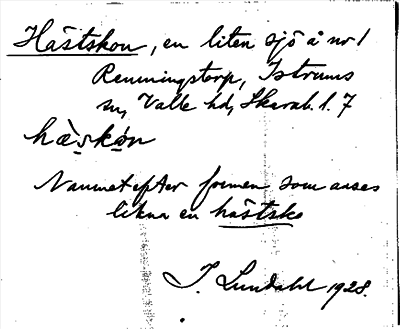 Hästskon, en liten sjö å nr 1
Remmingstorp, Istrums
sn, Valle hd, Skarab. l. 7
hæ̀skǫn
Namnet efter formen som anses
likna en hästsko
J. Lundahl 1928.